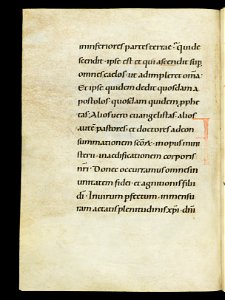 ininferiores partes terrae. qui de
scendit. ipse est et qui ascendit sup
omnes caelos. ut adimpleret om̄a.
Et ipse quidem dedit quosdam a
postolos. quosdam quidem pphe
tas. Alios uero euangelistas. alios
autē pastores et doctores adcon
summationem scōrum. inopus mini
sterii. inaedificationem corporis
xp̄i. Donec occurramus omnes in
unitatem fidei. et agnitionis filii
dī. Inuirum pfectum. inmensu
ram aetatis plenitudinis xp̄i.